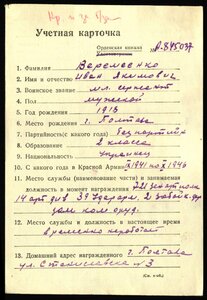 Кр. Зв.
Учетная карточка
Орденская книжка
А-845037
1. Фамилия Веременко
2. Имя и отчество Иван Якимович
3. Воинское звание мл. сержант
4. Пол мужской
5. Год рождения 1918
6. Место рождения г. Полтава
7. Партийность (с какого года) беспартийн
8. Образование 2 класса
9. Национальность украинец
10. С какого года в Красной Армии 1941 по 1946
11. Место службы (наименование части) и занимаемая
должность в момент награждения 721
14 арт. див 39
ком. оруд.
12. Место службы и должность в настоящее время
временно неработает
13. Домашний адрес награжденного г. Полтава
ул. № 3